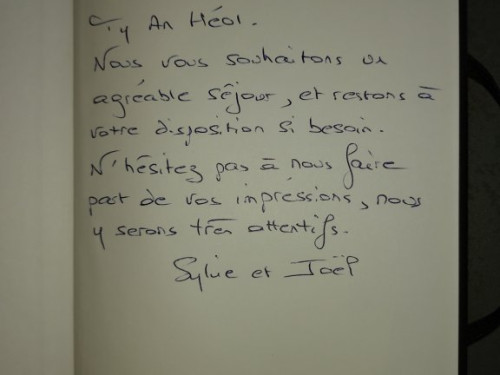 Ty An Héol.
Nous vous souhaitons un
agréable séjour, et restons à
votre disposition si besoin.
N'hésitez pas à nous faire
part de vos impressions, nous
y serons très attentifs.
Sylvie et Joël